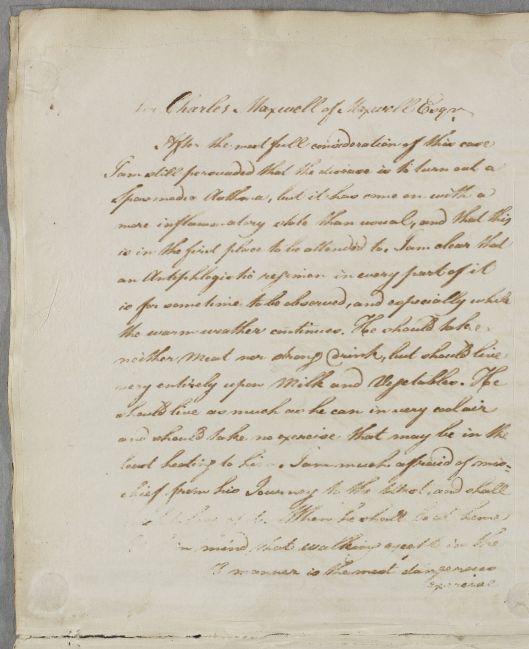 Charles Maxwell of Maxwell Esqr.
After the most full consideration of this case
I am still persuaded that the disease is to turn out a
Spasmodic Asthma, but it has come on with a
more inflammatory state than usual, and that this
is in the first place to be attended to. I am clear that
an Antiphlogistic regimen in every part of it
is for sometime to be observed, and especially while
the warm weather continues. He should take
neither Meat nor strong Drink, but should live
very entirely upon Milk and Vegetables. He
should live as much as he can in very cool air
and should take no exercise that may be in the
least heating to him. I am much afraid of mis-
chief from his Journey to the and shall
When he shall home
in mind, that walking in the
manner is the most dangerous
exercise